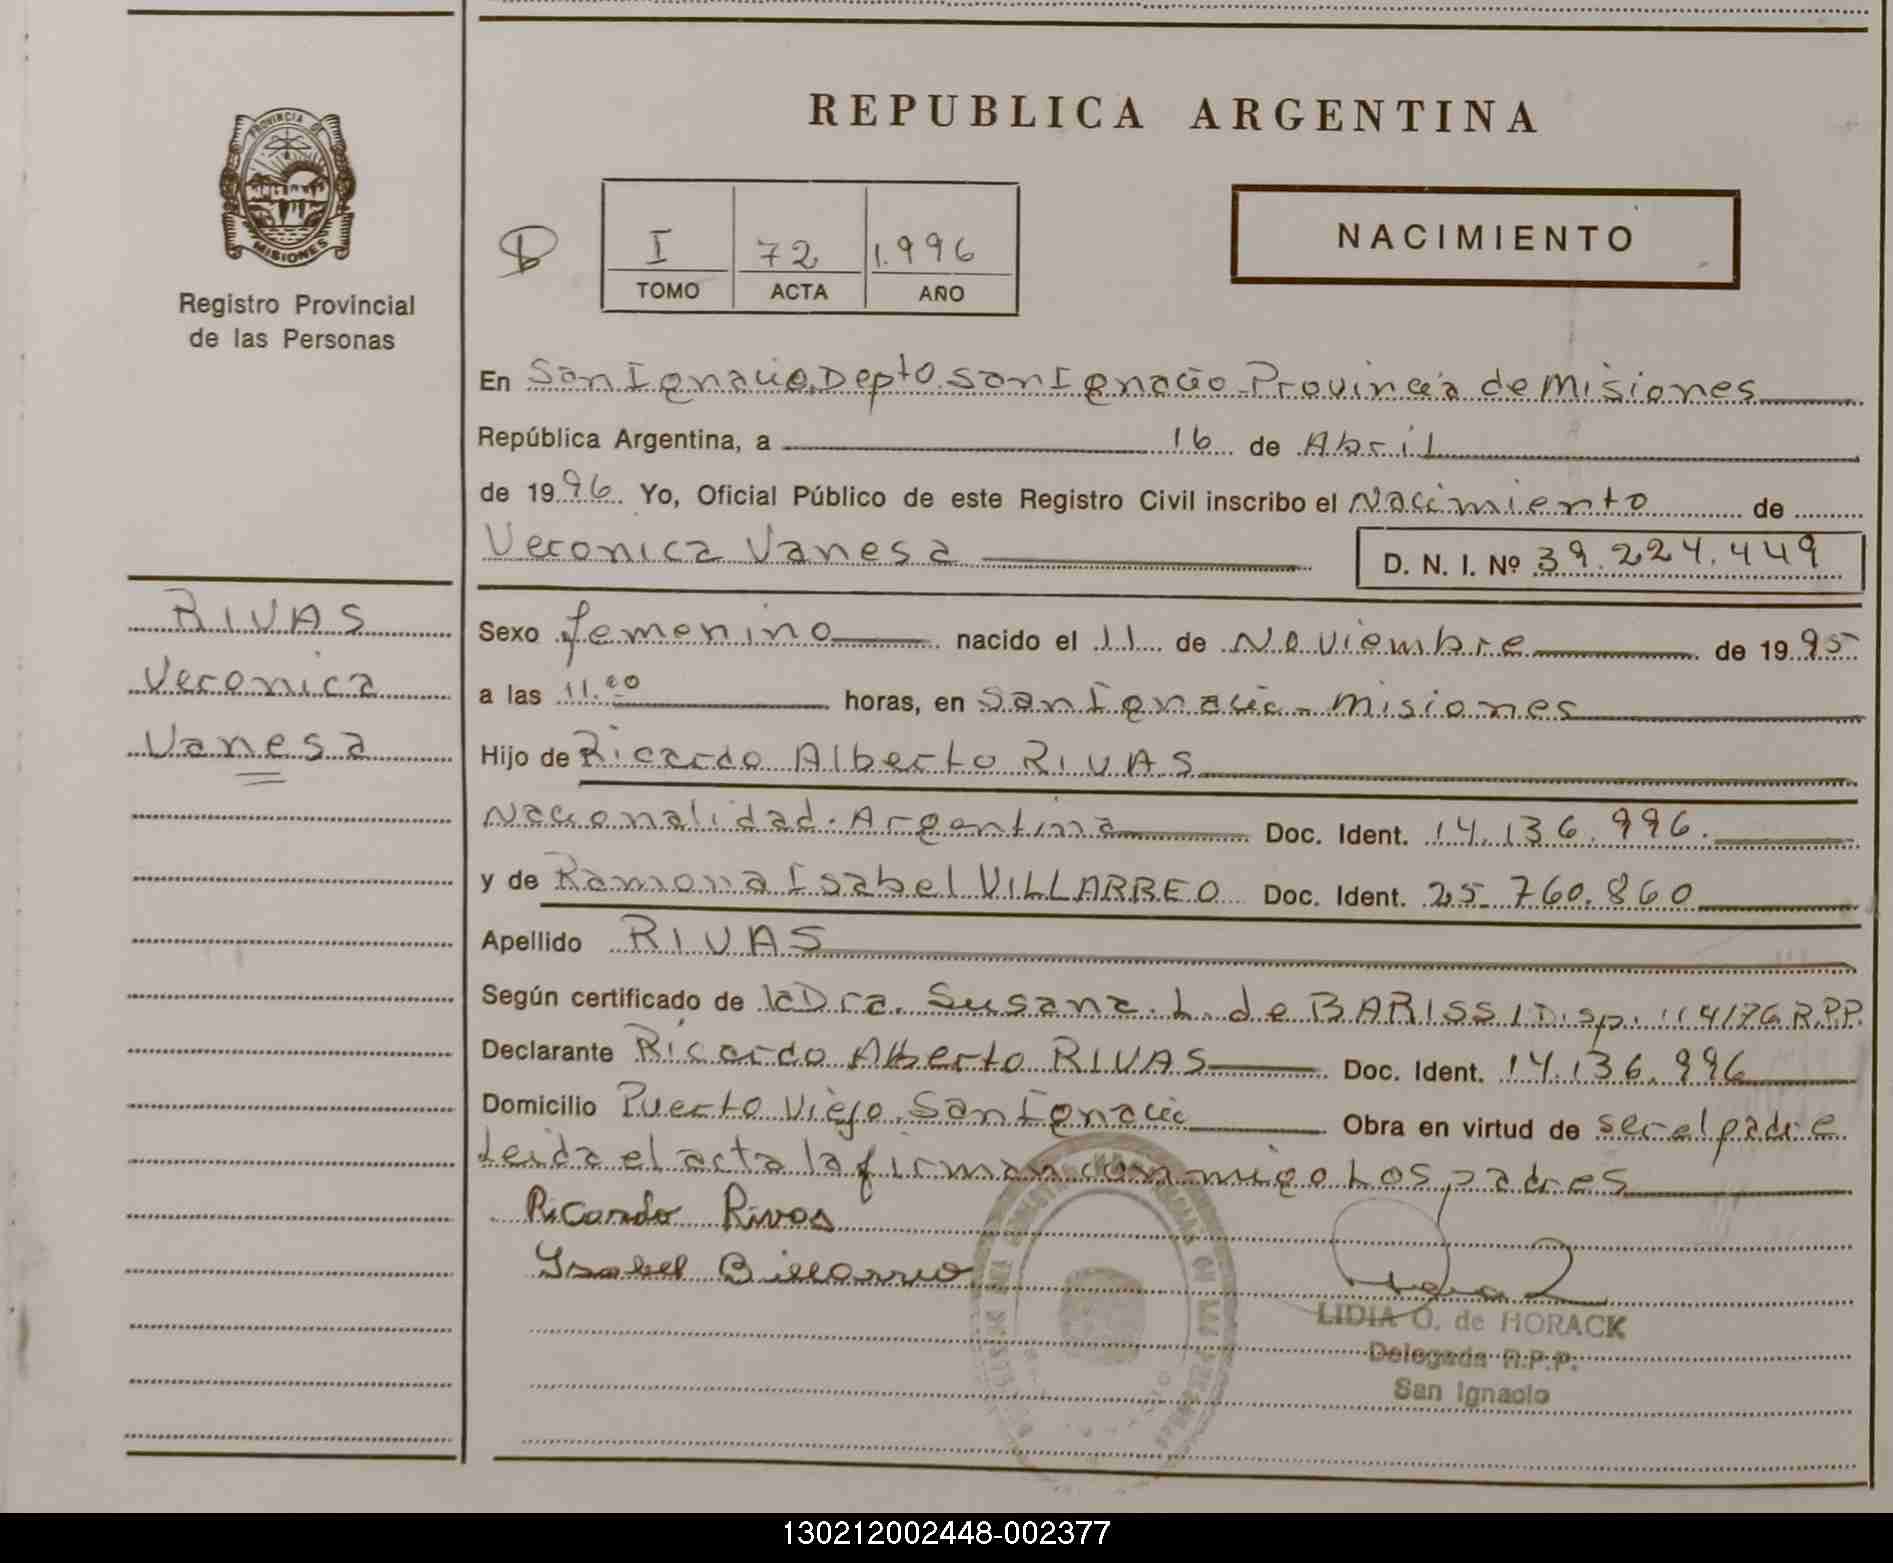 REPUBLICA ARGENTINA
PROVINCIA DE
MISIONES
Registro Provincial
de las Personas
I 72 1.996
TOMO ACTA AÑO
NACIMIENTO
En San Ignacio, Depto San Ignacio - Provincia de Misiones
República Argentina, a 16 de Abril
de 1996 Yo, Oficial Público de este Registro Civil inscribo el Nacimiento de
Veronica Vanesa D. N. I. Nº 39.224.449
RIVAS
Veronica
Vanesa
Sexo femenino nacido el 11 de Noviembre de 1995
a las 11.00 horas, en San Ignacio - Misiones
Hijo de Ricardo Alberto RIVAS
Nacionalidad. Argentina Doc. Ident. 14.136.996.
y de Ramona Isabel VILLARREO Doc. Ident. 25.760.860
Apellido RIVAS
Según certificado de la Dra. Susana. L. de BARISSI Disp. 114/76 R.P.P.
Declarante Ricardo Alberto RIVAS Doc. Ident. 14.136.996
Domicilio Puerto Viejo. San Ignacio Obra en virtud de ser el padre
Leida el acta la firman conmigo Los padres
Ricardo Rivas
Isabel Billarreo
LIDIA O. de HORACK
Delegada R.P.P.
San Ignacio
130212002448-002377